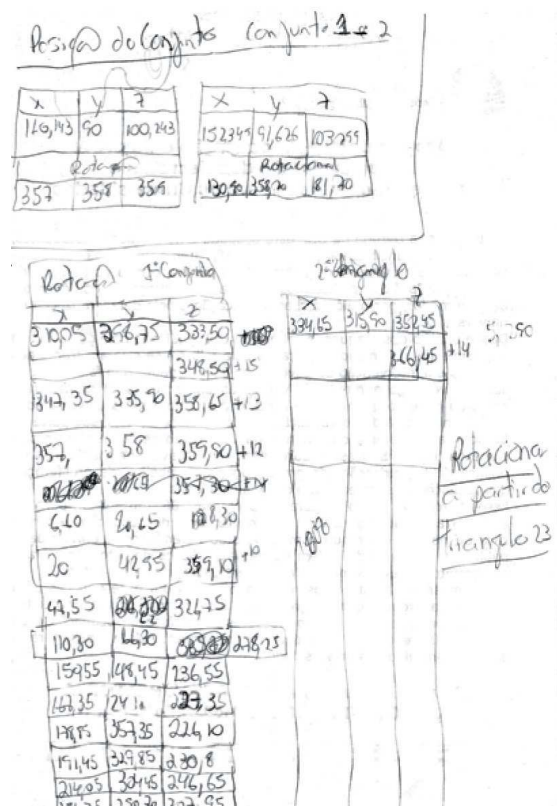 Posição do Conjunto Conjunto 1 e 2
x y z
116,143 90 100,243
Rotação
357 358 359
x y z
152349 91,626 103299
Rotacional
130,90 358,20 181,70
Rotação 1º Conjunto
x y z
310,05 266,75 333,50
348,50 +15
347,35 335,90 358,65 +13
357, 358 359,90 +12
6,60 20,65
20 42,55 359,10 +10
47,55 324,75
110,30 278,25
159,55 148,45 236,55
167,35 241 227,35
178,85 357,35 226,10
191,45 329,85 230,8
214,05 304,45 246,65
2º triangulo
x y z
334,65 315,90 352,45
366,45 +14
5,390
Rotacionar
a partir do
triangulo 23